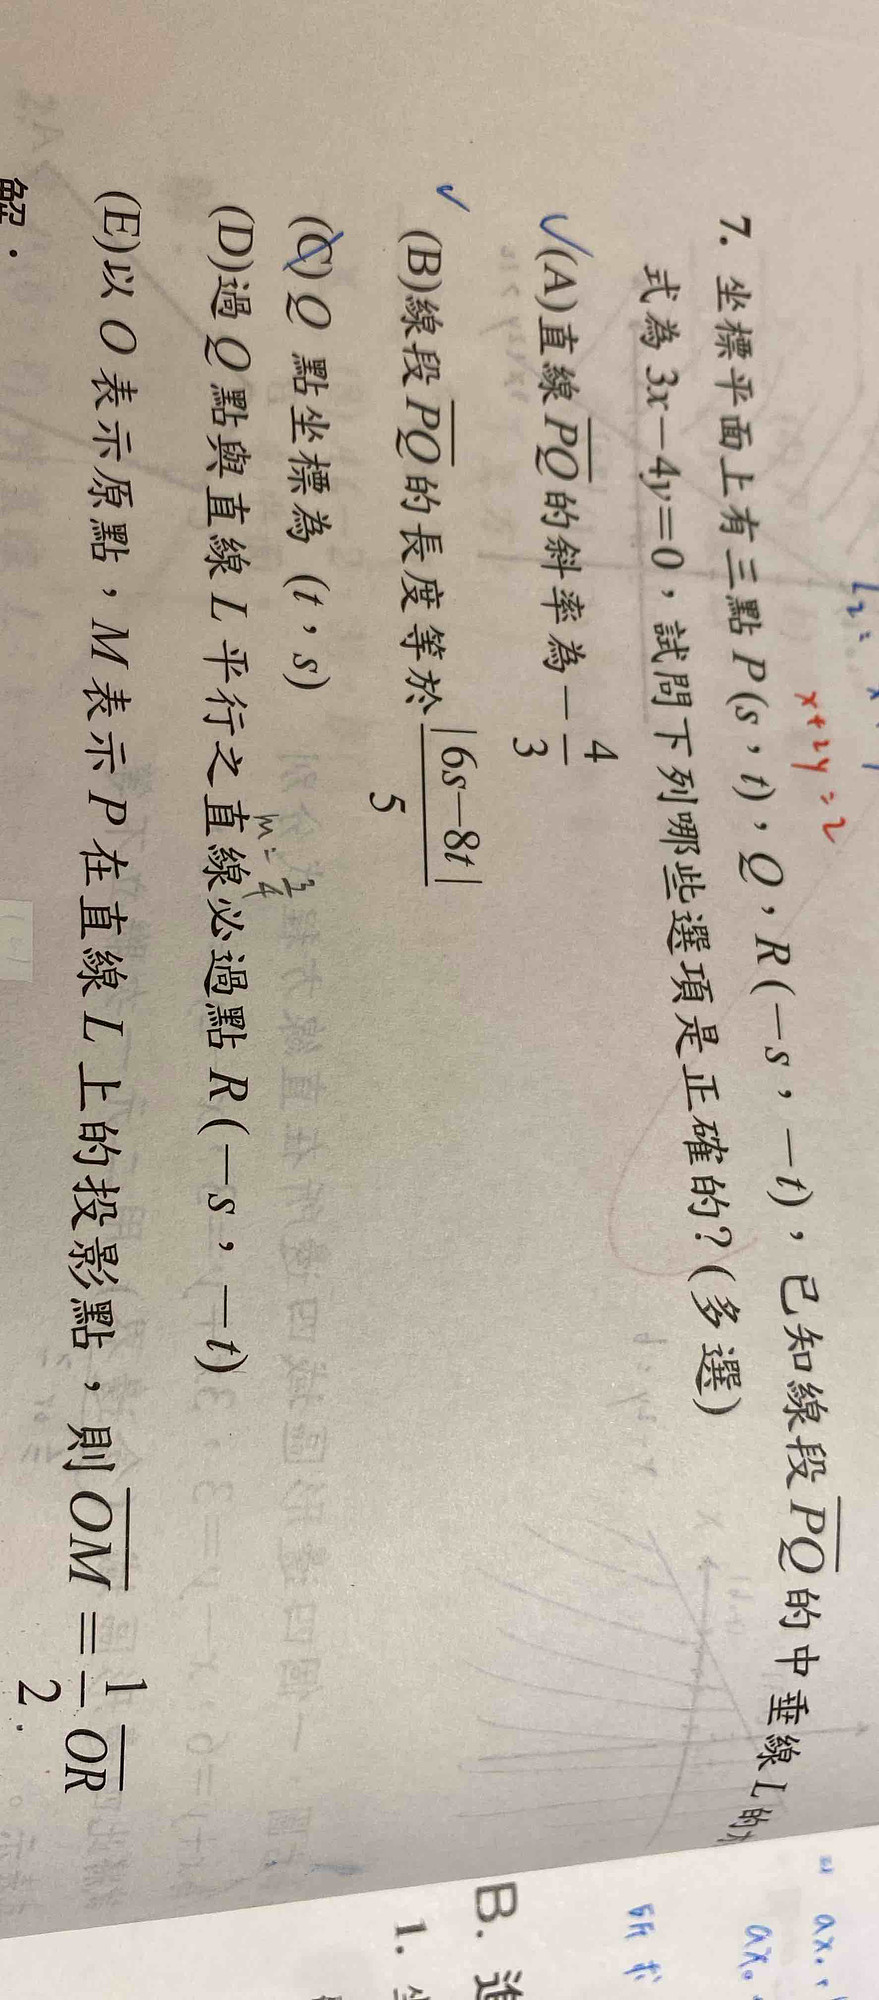 x+2y=2
7. 坐標平面上有三點 P(s，t)，Q，R(−s，−t)，已知線段 \overline{PQ} 的中垂線 L 的
式為 3x−4y=0，試問下列哪些選項是正確的?(多選)
✓(A)直線 \overline{PQ} 的斜率為 −\frac{4}{3}
✓(B)線段 \overline{PQ} 的長度等於 \frac{|6s−8t|}{5}
(C) Q 點坐標為 (t，s)
m=\frac{3}{4}
(D)過 Q 點與直線 L 平行之直線必過點 R(−s，−t)
(E)以 O 表示原點，M 表示 P 在直線 L 上的投影點，則 \overline{OM}=\frac{1}{2}\overline{OR}
解：
所求
B. 進
1. 坐